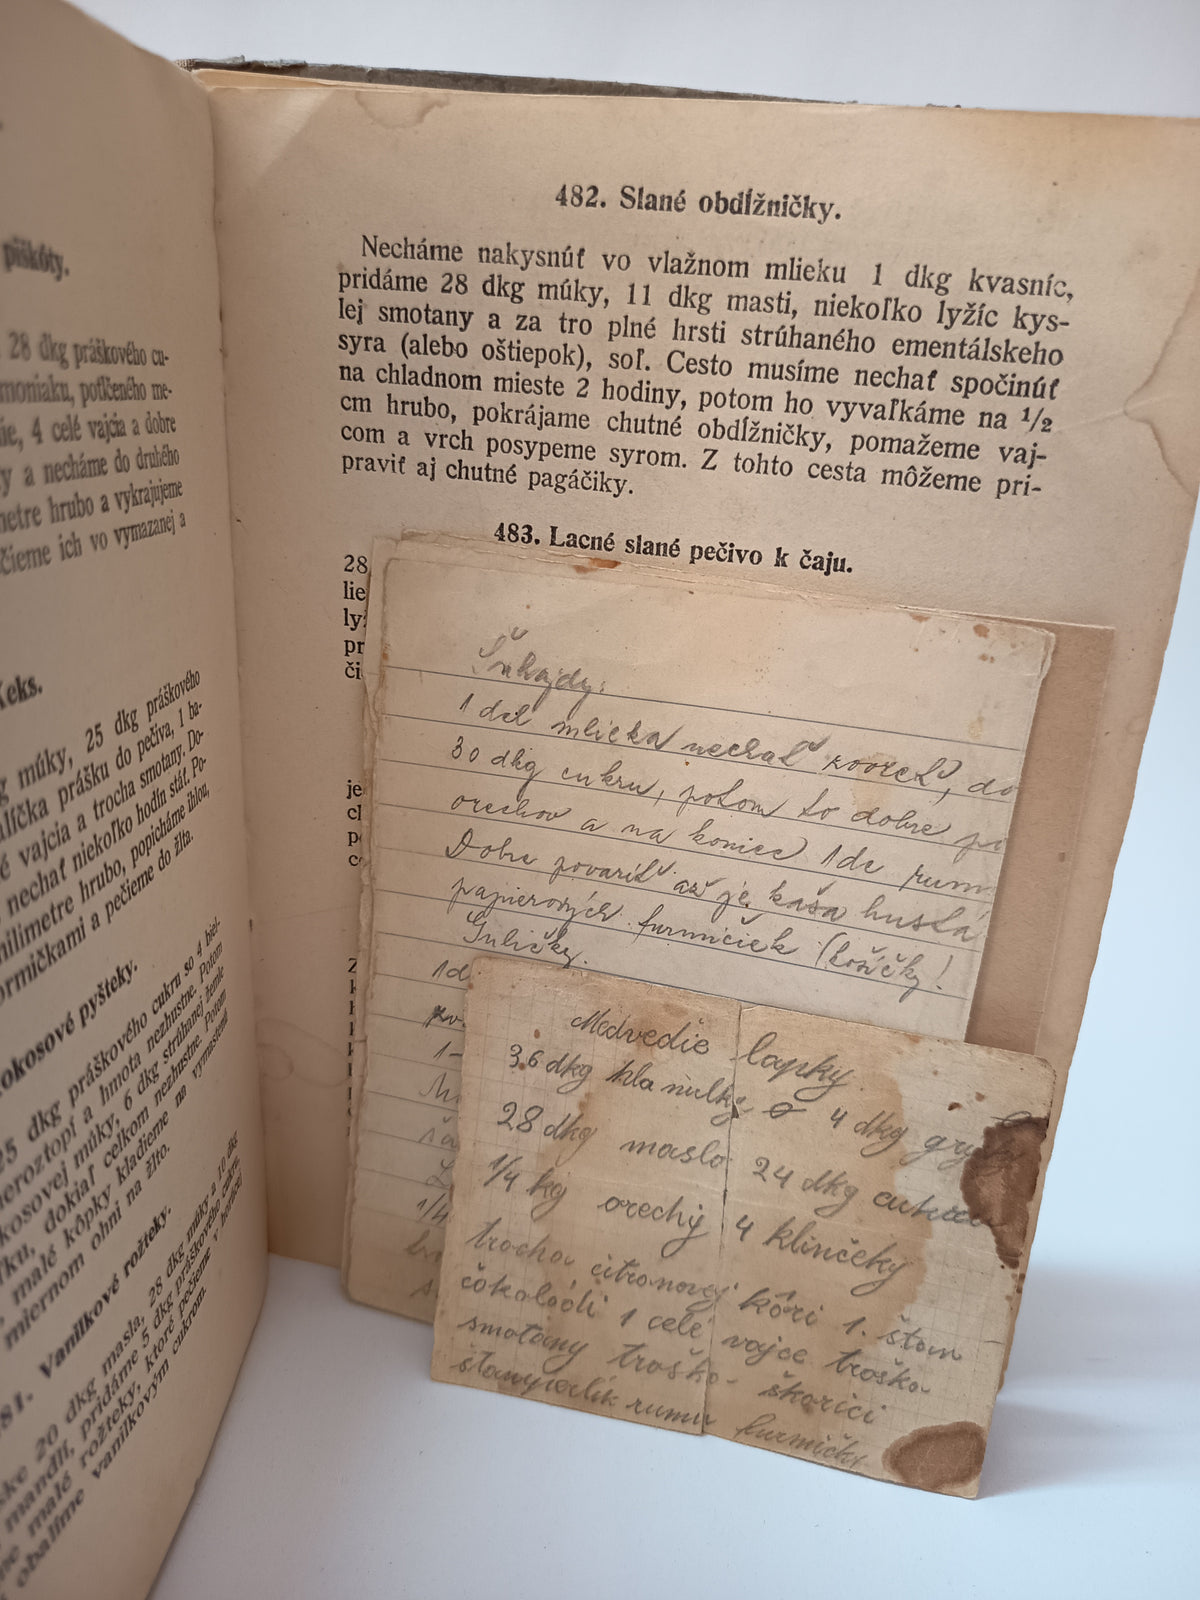 piškóty.
28 dkg práškového cu-
moniaku, potlčeného me-
4 celé vajcia a dobre
y a necháme do druhého
metre hrubo a vykrajujeme
čieme ich vo vymazanej a
Keks.
g múky, 25 dkg práškového
alíčka prášku do pečiva, 1 ba-
é vajcia a trocha smotany. Do-
nechať niekoľko hodín stáť. Po-
milimetre hrubo, popicháme ihlou,
ormičkami a pečieme do žlta.
okosové pyšteky.
25 dkg práškového cukru so 4 biel-
neroztopí a hmota nezhustne. Potom
kosovej múky, 6 dkg strúhanej žemle
ku, dokiaľ celkom nezhustne. Potom
malé kôpky kladieme na vymastené
miernom ohni na žlto.
81. Vanilkové rožteky.
20 dkg masla, 28 dkg múky a 10 dkg
mandlí, pridáme 5 dkg práškového cukru,
me malé rožteky, ktoré pečieme v horúcej
obalíme vanilkovým cukrom.
482. Slané obdĺžničky.
Necháme nakysnúť vo vlažnom mlieku 1 dkg kvasníc,
pridáme 28 dkg múky, 11 dkg masti, niekoľko lyžíc kys-
lej smotany a za tro plné hrsti strúhaného ementálskeho
syra (alebo oštiepok), soľ. Cesto musíme nechať spočinúť
na chladnom mieste 2 hodiny, potom ho vyvaľkáme na ½
cm hrubo, pokrájame chutné obdĺžničky, pomažeme vaj-
com a vrch posypeme syrom. Z tohto cesta môžeme pri-
praviť aj chutné pagáčiky.
483. Lacné slané pečivo k čaju.
28
lie
lyž
pr
či
je
cl
Šuhajdy:
1 del mlieka nechať zovreť, do
30 dkg cukru, potom to dobre
orechov a na koniec 1 dc rum
Dobre povariť až je kaša hustá
papierových furmičiek (košíčky!
Guličky.
1 d
1/4
Medvedie lapky
36 dkg hla mulky 4 dkg
28 dkg maslo 24 dkg
1/4 kg orechy 4 klinčeky
trocha citronovej kôri 1. štan
čokoládi 1 celé vajce troško
smotany troško škorici
štamperlík rumu furmičky